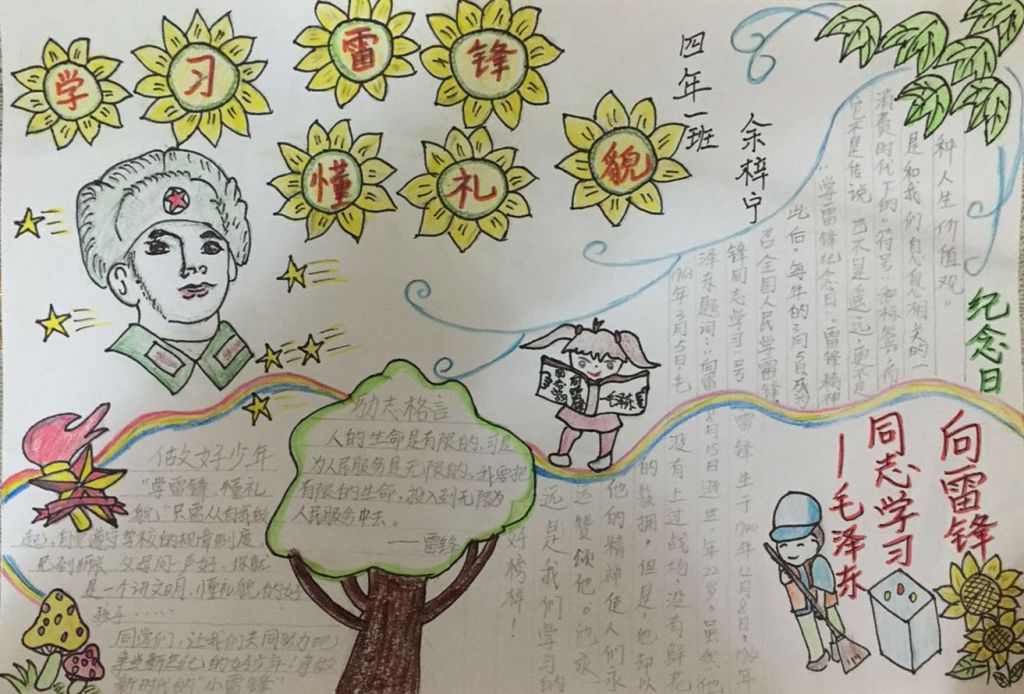 学习雷锋
懂礼貌
四年一班
余梓宁
纪念日
种人生价值观。
是和我们息息相关的一
消费时代下的“符号”和标签，而
它不是传说，也不是遥远，更不是
“学雷锋纪念日”。“雷锋精神
此后，每年的3月5日成为
召全国人民学雷锋
锋同志学习”号
泽东题词：“向雷
1963年3月5日，毛
向雷锋
同志学习
—毛泽东
雷锋生于1940年12月8日，1962
年8月15日逝世，年22岁。虽然他
没有上过战场，没有鲜花
的簇拥，但是，他却以
他的精神使人们永
远赞颂他。他永
远是我们学习的
好榜样！
励夫格言
人的生命是有限的，可是
为人民服务是无限的，我要把
有限的生命，投入到无限为
人民服务中去。
——雷锋
做文好少年
“学雷锋、懂礼
貌”只需从自我做
起，自觉遵守学校的规章制度
见到师长、父母问一声好，你就
是一个讲文明、懂礼貌的好
孩子……
同学们，让我们共同努力吧！
争当新世纪的好少年！争做
新时代的“小雷锋”